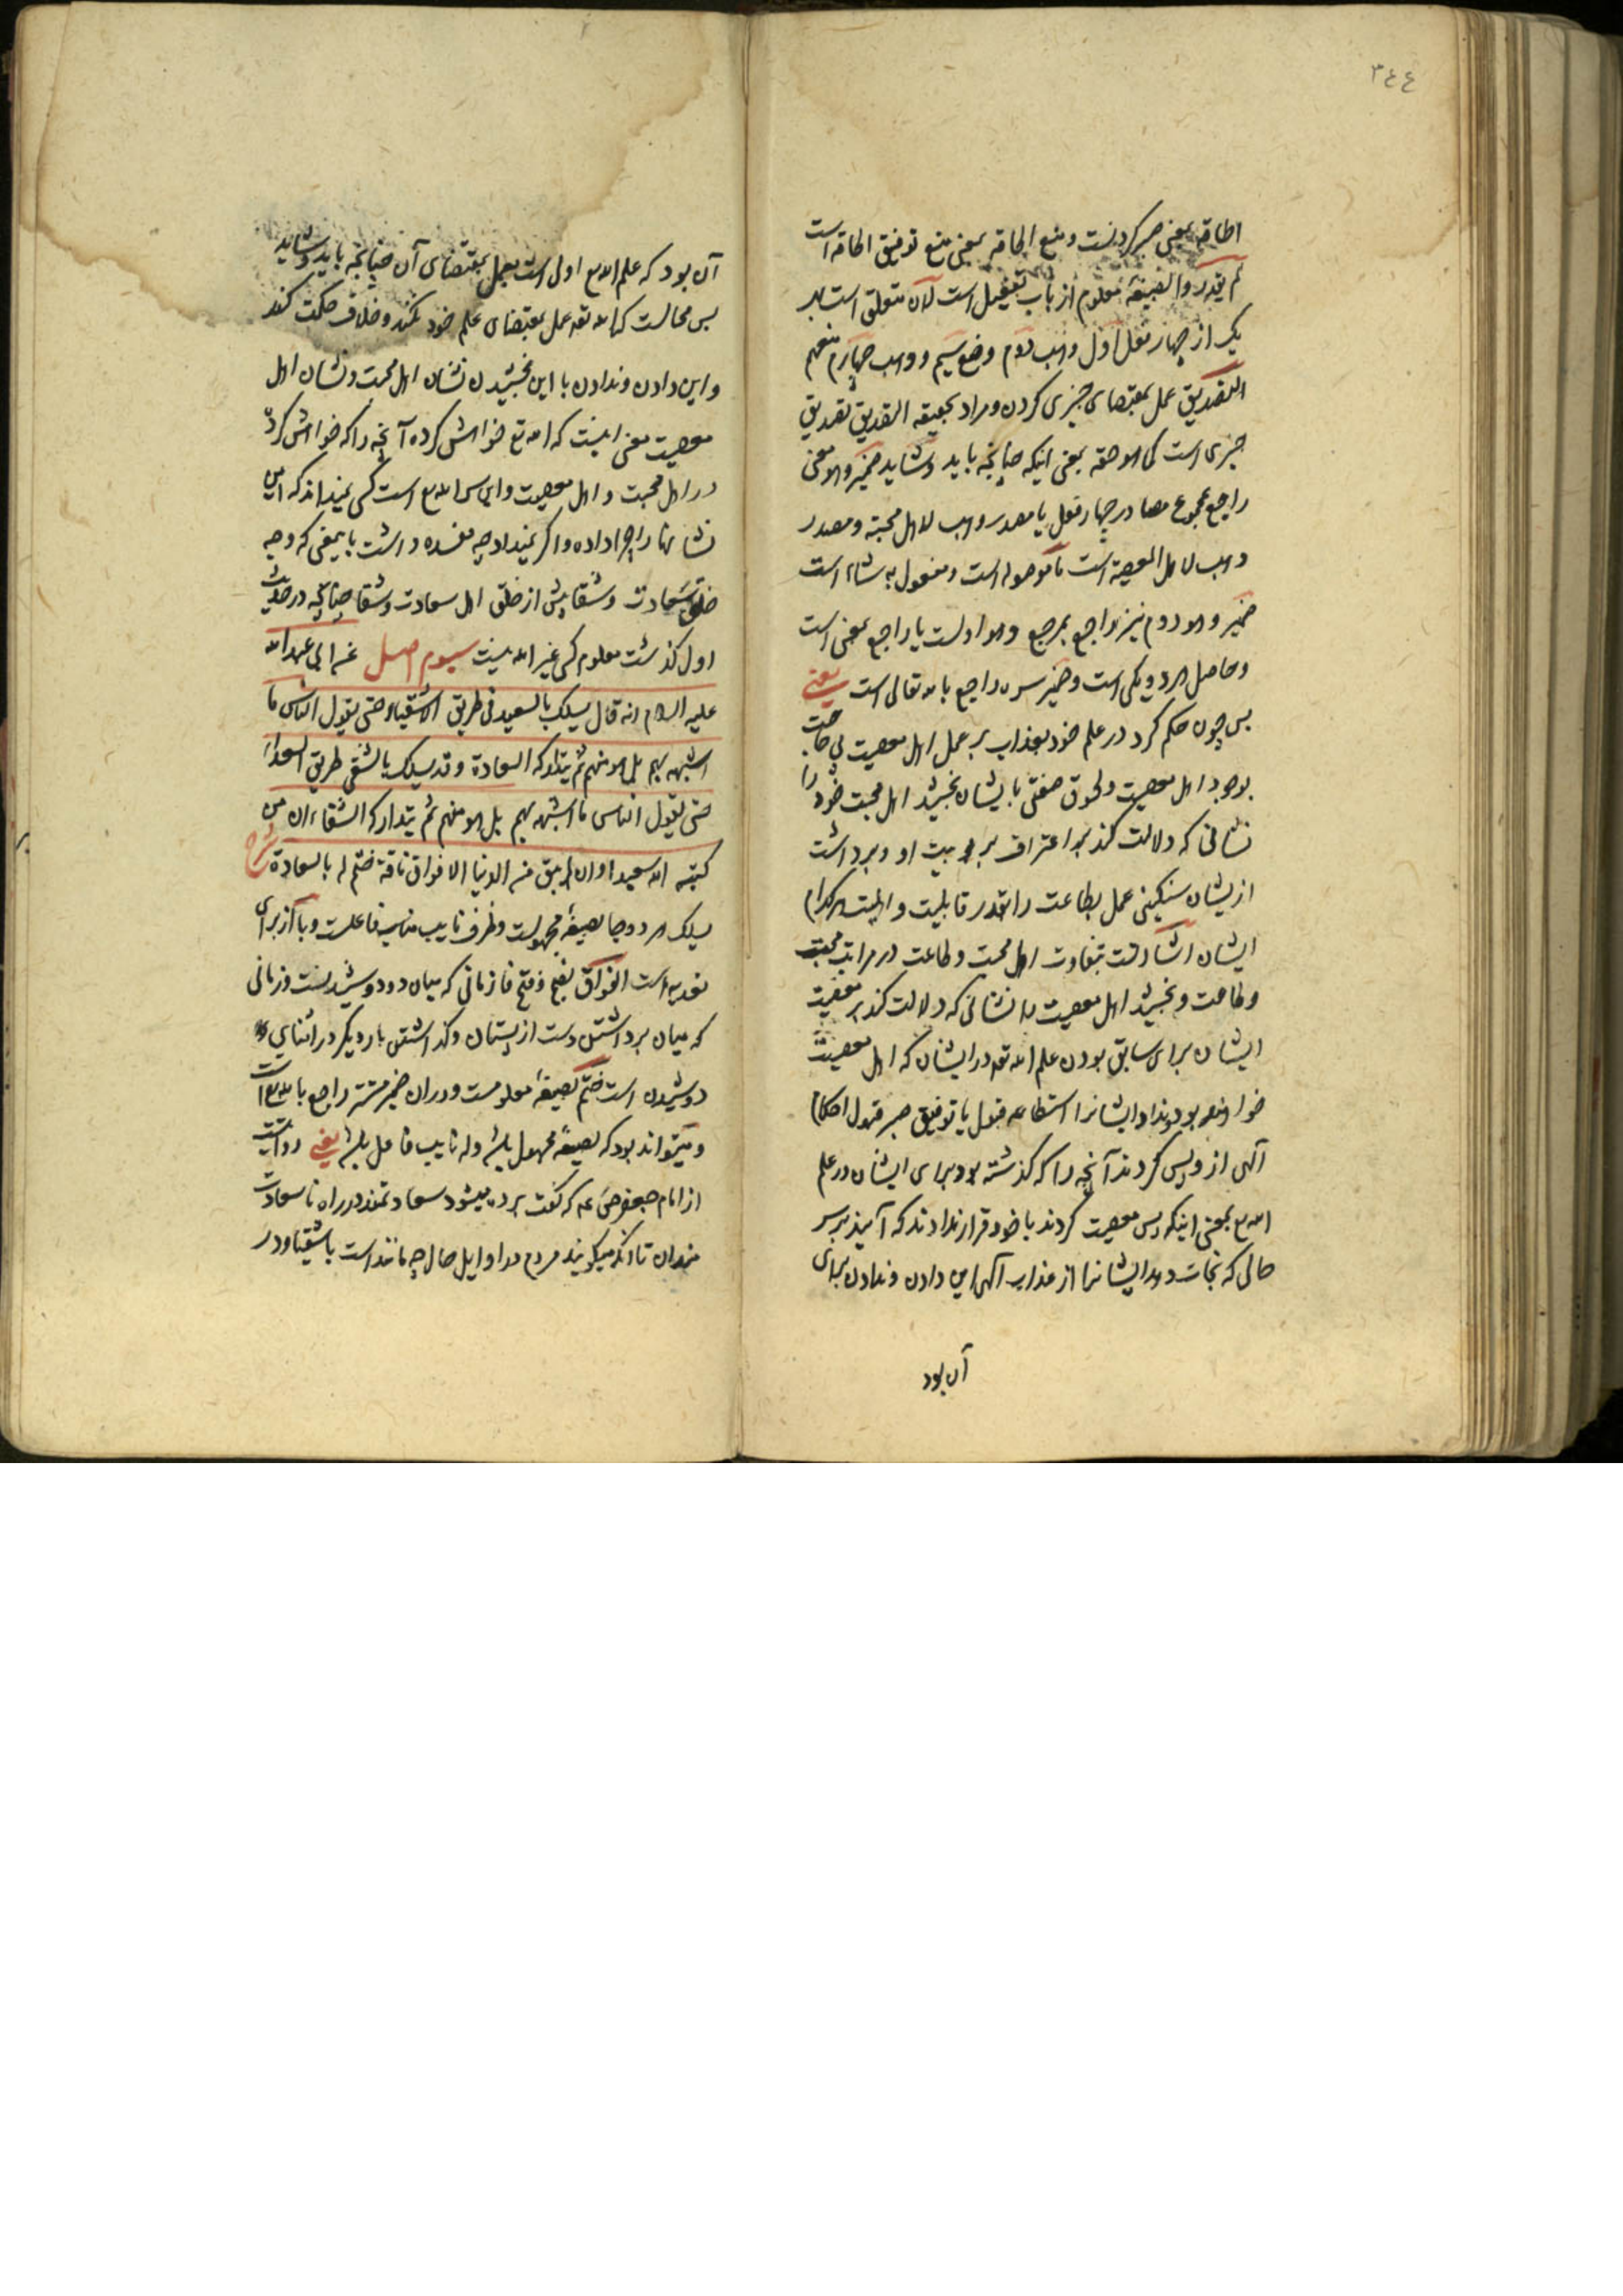 ٣٤٤
اطاقه بمعنی صبر کردنست و منع اطاقه بمعنی منع توفیق اطاقه است
لم یقدر وا بصیغه معلوم از باب تفعیل است لان متعلق است بهر
یک از چهار فعل اول وهب دوم وضع سیم ووهب چهارم منعهم
التصدیق عمل بمقتضای چیزی کردن و مراد بحقیقه التصدیق تصدیق
چیزی است کما هو حقه بمعنی اینکه چنانچه باید و شاید ضمیر وهو معنی
راجع بمجموع مصادر چهار فعل یا مصدر وهب لاهل محبته و مصدر
وهب لاهل المعصیة است ما موصوله است و مفعول به شاء است
ضمیر وهو دوم نیز راجع بمرجع وهو اولست یا راجع بمعنی است
و حاصل هر دو یکی است و ضمیر سره راجع بالله تعالی است یعنی
پس چون حکم کرد در علم خود بعذاب بر عمل اهل معصیت بی حاجت
بوجود اهل معصیت و لحوق صفتی بایشان بخشید اهل محبت خود را
نشانی که دلالت کند بر اعتراف بربوبیت او و برداشت
ازیشان سنگینی عمل بطاعت را بقدر قابلیت و اهلیت هرکدام
ایشان اشارتست بتفاوت اهل محبت و طاعت در مراتب محبت
و طاعت و بخشید اهل معصیت را نشانی که دلالت کند بر معصیت
ایشان برای سابق بودن علم الله تعه در ایشان که اهل معصیت
خواهند بود و نداد ایشانرا استطاعه قبول یا توفیق صبر قبول احکام
آلهی ازو پس کردند آنچه را که گذشته بود برای ایشان در علم
الله تع بمعنی اینکه پس معصیت کردند با خود قرار ندادند که آیند بر سر
حالی که نجات دهد ایشانرا از عذاب آلهی این دادن و ندادن برای
آن بود
آن بود که علم الله تع اول است بعمل بمقتضای آن چنانچه باید و شاید
پس محالست که الله تعه عمل بمقتضای علم خود نکند و خلاف حکمت کند
و این دادن و ندادن با این بخشیدن نشان اهل محبت و نشان اهل
معصیت معنی اینست که الله تع خواهش کرده آنچه را که خواهش کرد
در اهل محبت و اهل معصیت و این سر الله تع است کسی نمیداند که این
نشانها را چرا داده و اگر نمیداد چه مفسده داشت بایمعنی که وجه
خلق سعادت و شقا پیش از خلق اهل سعادت و شقا چنانچه در حدیث
اول گذشت معلوم کسی غیر الله نیست سیوم اصل عن ابی عبدالله
علیه السلام انه قال یسلک بالسعید فی طریق الاشقیاء حتی یقول الناس ما
اشبهه بهم بل هو منهم ثم یتدارکه السعادة وقد یسلک بالشقی طریق السعداء
حتی یقول الناس ما اشبهه بهم بل هو منهم ثم یتدارکه الشقاء ان من
کتبه الله سعیدا وان لم یبق من الدنیا الا فواق ناقة ختم له بالسعادة شرح
یسلک هر دو جا بصیغه مجهولست و ظرف نایب مناب فاعلست و با از برای
تعدیه است الفواق بضم و فتح فا زمانی که میان دو دوشیدنست و زمانی
که میان برداشتن دست از پستان و گذاشتن بار دیگر در اثنای
دوشیدن است ختم بصیغه معلومست و دران ضمیر مستتر راجع بالله تع است
و میتواند بود که بصیغه مجهول باشد و له نایب فاعل باشد یعنی روایت
از امام جعفر ص ع م که گفت برده میشود سعادتمند در راه ناسعادت
مندان تا آنکه میگویند مردم در اوایل حال چه مانند است باشقیا و در